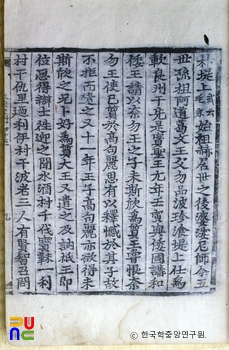 朴堤上或云毛末始祖赫居世之後婆娑尼師今五
世孫祖阿道葛文王父勿品波珍湌堤上仕爲
歃良州干先是實聖王元年壬寅與倭國講和
倭王請以奈勿王之子未斯欣爲質王嘗恨奈
勿王使己質於高句麗思有以釋憾於其子故
不拒而遣之又十一年壬子高句麗亦欲得未
斯欣之兄卜好爲質大王又遣之及訥祇王即
位思得辯士徃迎之聞水酒村干伐寶靺一利
村干仇里迺利伊村干波老三人有賢智召問
ⓒ 한국학중앙연구원.